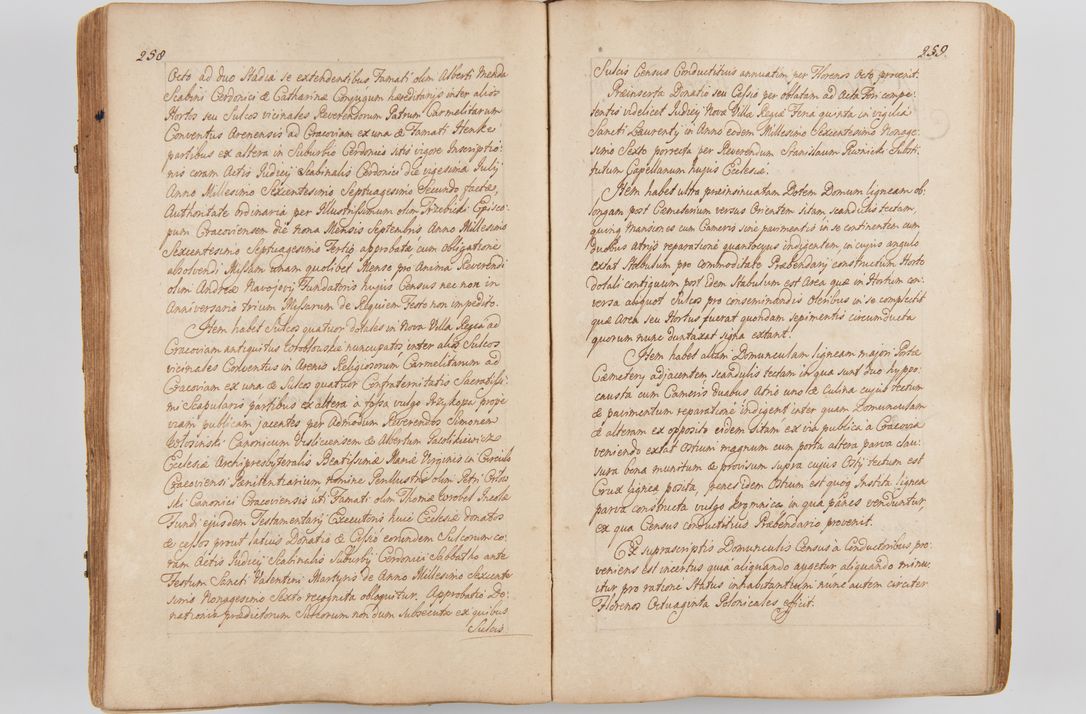 258
Octo ad duo Stadia se extendentibus Famati olim Alberti Menda
Scabini Cerdonici & Catharinæ Conjugum hæreditarijs inter alios
Hortos seu Sulcos vicinales Reverendorum Patrum Carmelitarum
Conventus Arenensis ad Cracoviam ex una & Famati Henskei
partibus ex altera in Suburbio Cerdonico sitis vigore Inscriptio-
nis coram Actis Judicij Scabinalis Cerdonici die vigesima Julij
Anno Millesimo Sexcentesimo Septuagesimo Secundo factæ,
Authoritate ordinaria per Illustrissimum olim Trzebicki Episco-
pum Cracoviensem die nona Mensis Septembris Anno Millesimo
Sexcentesimo Septuagesimo Tertio approbatæ cum obligatione
absolvendi Missam unam quolibet Mense pro Anima Reverendi
olim Andreæ Navojovij Fundatoris hujus Census nec non in
Anniversario trium Missarum de Requiem Festo non impedito.
Item habet Sulcos quatuor dotales in Nova Villa Regia ad
Cracoviam antiquitus nuncupatos inter alios Sulcos
vicinales Conventus in Arenis Religiosorum Carmelitarum ad
Cracoviam ex una & Sulcos quatuor Confraternitatis Sacratissi-
mi Scapularis partibus ex altera à fossa vulgo Przykopa prope
viam publicam jacentes per Admodum Reverendos Simonem
Canonicum Visliciensem & Albertum
Ecclesiæ Archipresbyteralis Beatissimæ Mariæ Virginis in Circulo
Cracoviensi Pœnitentiarium nomine Perillustris olim Petri
Canonici Cracoviensis uti Famati olim Thomæ Wrobel Incolæ
Fundi ejusdem Testamentarij Executoris huic Ecclesiæ donatos
& cessos prout latius Donatio & Cessio eorundem Sulcorum co-
ram Actis Judicij Scabinalis Suburbij Cerdonici Sabbatho ante
Festum Sancti Valentini Martyris de Anno Millesimo Sexcente
simo Nonagesimo Sexto recognita obloquitur. Approbatio Do-
nationis prædictorum Sulcorum non dum subsecuta ex quibus
Sulcis
259.
Sulcis Census Conductitius annuatim per Florenos Octo provenit.
Præinserta Donatio seu Cessio per oblatam ad Acta Fori compe-
tentis videlicet Judicij Nova Villa Regia Feria quinta in vigilia
Sancti Laurentij in Anno eodem Millesimo Sexcentesimo Nonage-
simo Sexto porrecta per Reverendum Stanislaum Substi-
tutum Capellanum hujus Ecclesiæ.
Item habet ultra præinsinuatam Dotem Domum ligneam ob-
longam post Cæmeterium versus Orientem sitam scandulis tectam,
quinq Mansiones cum Cameris sine pavimentis in se continentem cum
duobus atrijs reparatione quantocyus indigentem in cujus angulo
extat Stabulum pro commoditate Præbendarij constructum Horto
dotali contiguum post idem Stabulum est Area quæ in Hortum con-
versa aliquot Sulcos pro conseminandis Oleribus in se complectit
quæ Area seu Hortus fuerat quondam sepimentis circumducta
quorum nunc duntaxat signa extant.
Item habet aliam Domunculam ligneam majori Portæ
Cæmeterij adjacentem scandulis tectam in qua sunt duo hypo-
causta cum Cameris duabus Atrio uno & Culina cujus tectum
& pavimentum reparatione indigent inter quam Domunculam
& alteram ex opposito eidem sitam ex via publica à Cracovia
veniendo extat Ostium magnum cum porta altera parva clau-
sura bona munitum & provisum supra cujus Ostij tectum est
Crux lignea posita, penes idem Ostium est quoq Instita lignea
parva constructa vulgo in qua panes venduntur,
ex qua Census conductitius Præbendario provenit.
Ex suprascriptis Domunculis Census à Conductoribus pro-
veniens est incertus quia aliquando augetur aliquando minu-
itur pro ratione Status inhabitantium nunc autem circiter
Florenos Octuaginta Polonicales efficit.